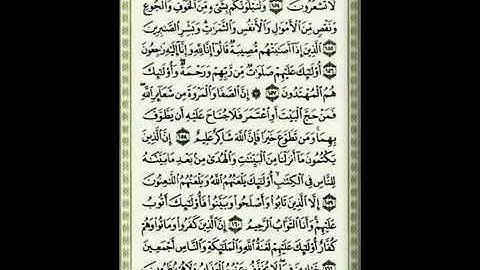 لَا تَشْعُرُونَ ١٥٤ وَلَنَبْلُوَنَّكُم بِشَىْءٍ مِّنَ الْخَوْفِ وَالْجُوعِ
وَنَقْصٍ مِّنَ الْأَمْوَالِ وَالْأَنفُسِ وَالثَّمَرَاتِ وَبَشِّرِ الصَّابِرِينَ
١٥٥ الَّذِينَ إِذَا أَصَابَتْهُم مُّصِيبَةٌ قَالُوا إِنَّا لِلَّهِ وَإِنَّا إِلَيْهِ رَاجِعُونَ
١٥٦ أُولَٰئِكَ عَلَيْهِمْ صَلَوَاتٌ مِّن رَّبِّهِمْ وَرَحْمَةٌ وَأُولَٰئِكَ
هُمُ الْمُهْتَدُونَ ١٥٧ ۞ إِنَّ الصَّفَا وَالْمَرْوَةَ مِن شَعَائِرِ اللَّهِ
فَمَنْ حَجَّ الْبَيْتَ أَوِ اعْتَمَرَ فَلَا جُنَاحَ عَلَيْهِ أَن يَطَّوَّفَ
بِهِمَا وَمَن تَطَوَّعَ خَيْرًا فَإِنَّ اللَّهَ شَاكِرٌ عَلِيمٌ ١٥٨ إِنَّ الَّذِينَ
يَكْتُمُونَ مَا أَنزَلْنَا مِنَ الْبَيِّنَاتِ وَالْهُدَىٰ مِن بَعْدِ مَا بَيَّنَّاهُ
لِلنَّاسِ فِي الْكِتَابِ أُولَٰئِكَ يَلْعَنُهُمُ اللَّهُ وَيَلْعَنُهُمُ اللَّاعِنُونَ
١٥٩ إِلَّا الَّذِينَ تَابُوا وَأَصْلَحُوا وَبَيَّنُوا فَأُولَٰئِكَ أَتُوبُ
عَلَيْهِمْ وَأَنَا التَّوَّابُ الرَّحِيمُ ١٦٠ إِنَّ الَّذِينَ كَفَرُوا وَمَاتُوا وَهُمْ
كُفَّارٌ أُولَٰئِكَ عَلَيْهِمْ لَعْنَةُ اللَّهِ وَالْمَلَائِكَةِ وَالنَّاسِ أَجْمَعِينَ
١٦١ خَالِدِينَ فِيهَا لَا يُخَفَّفُ عَنْهُمُ الْعَذَابُ وَلَا هُمْ يُنظَرُونَ